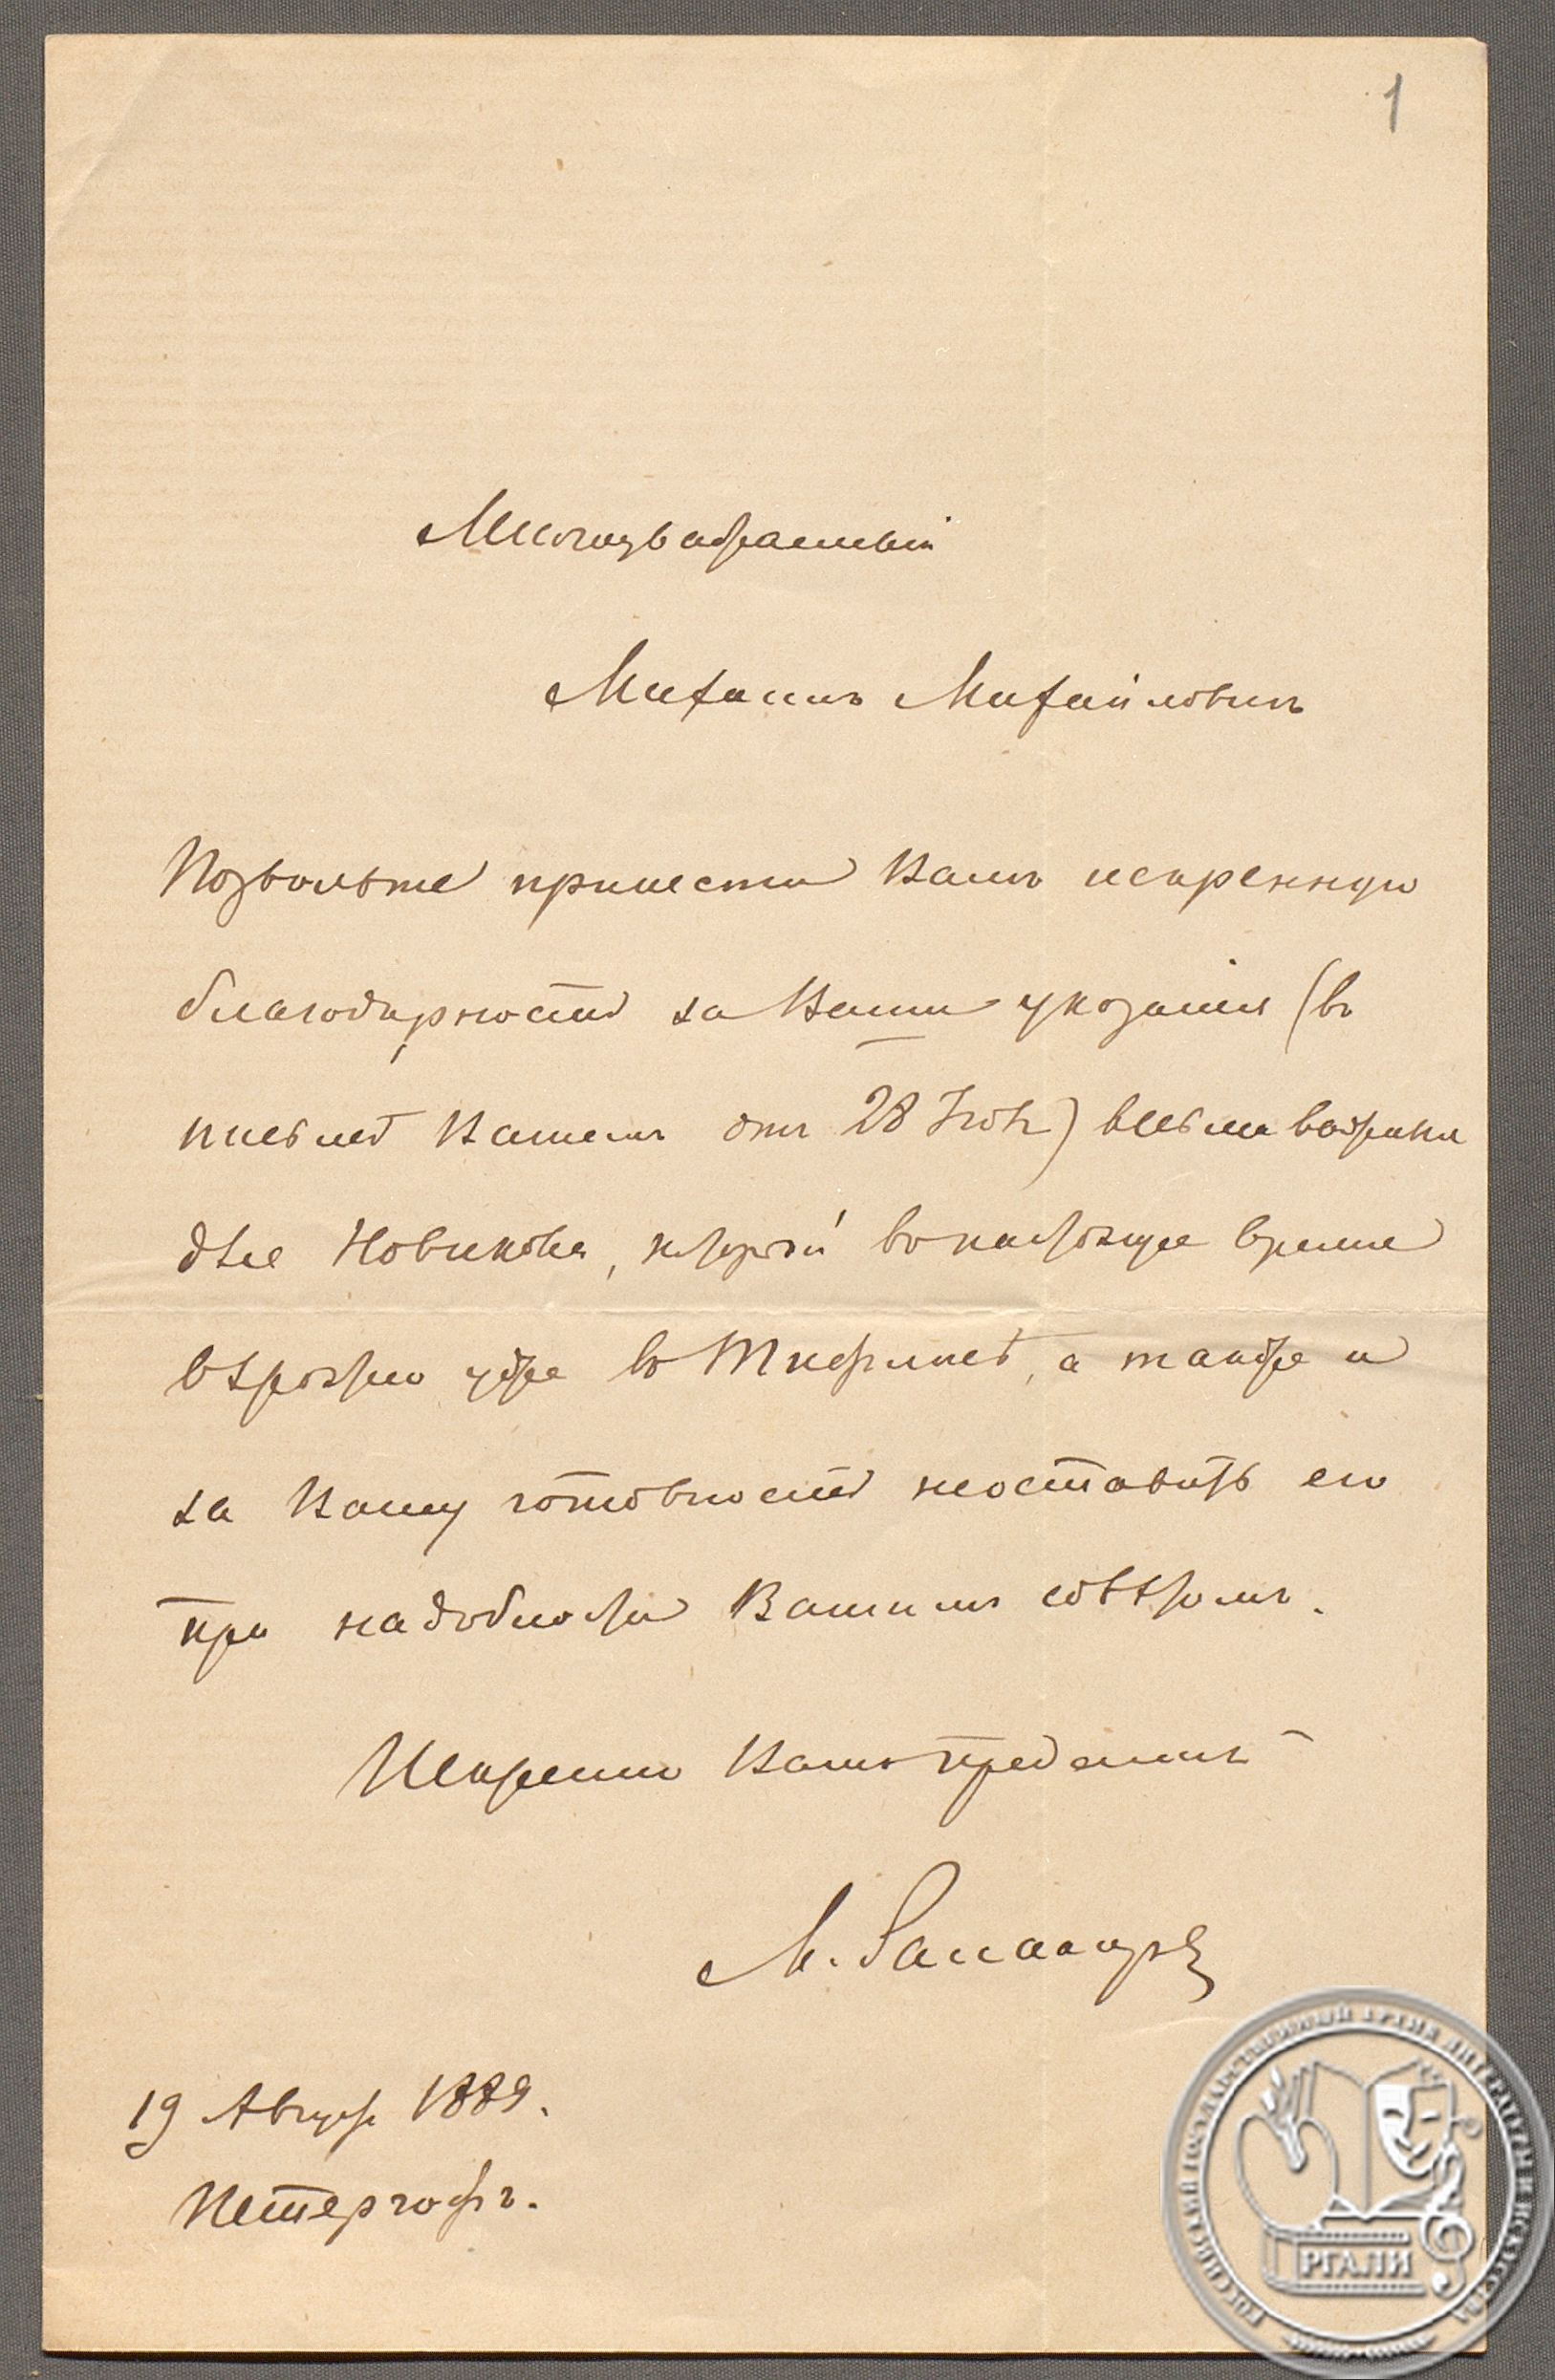 1
Многоуважаемый
Михаилъ Михайловичъ
Позвольте принести Вамъ искреннюю
благодарность за Ваши указанія (въ
письмѣ Вашемъ отъ 28 Іюля) весьма важныя
для Новикова, который въ настоящее время
вѣроятно уже въ Тифлисѣ, а также и
за Вашу готовность неоставить его
при надобности Вашимъ совѣтомъ.
Искренно Вамъ преданный
19 Августа 1889.
Петергофъ.
РОССИЙСКИЙ ГОСУДАРСТВЕННЫЙ АРХИВ ЛИТЕРАТУРЫ И ИСКУССТВА
РГАЛИ